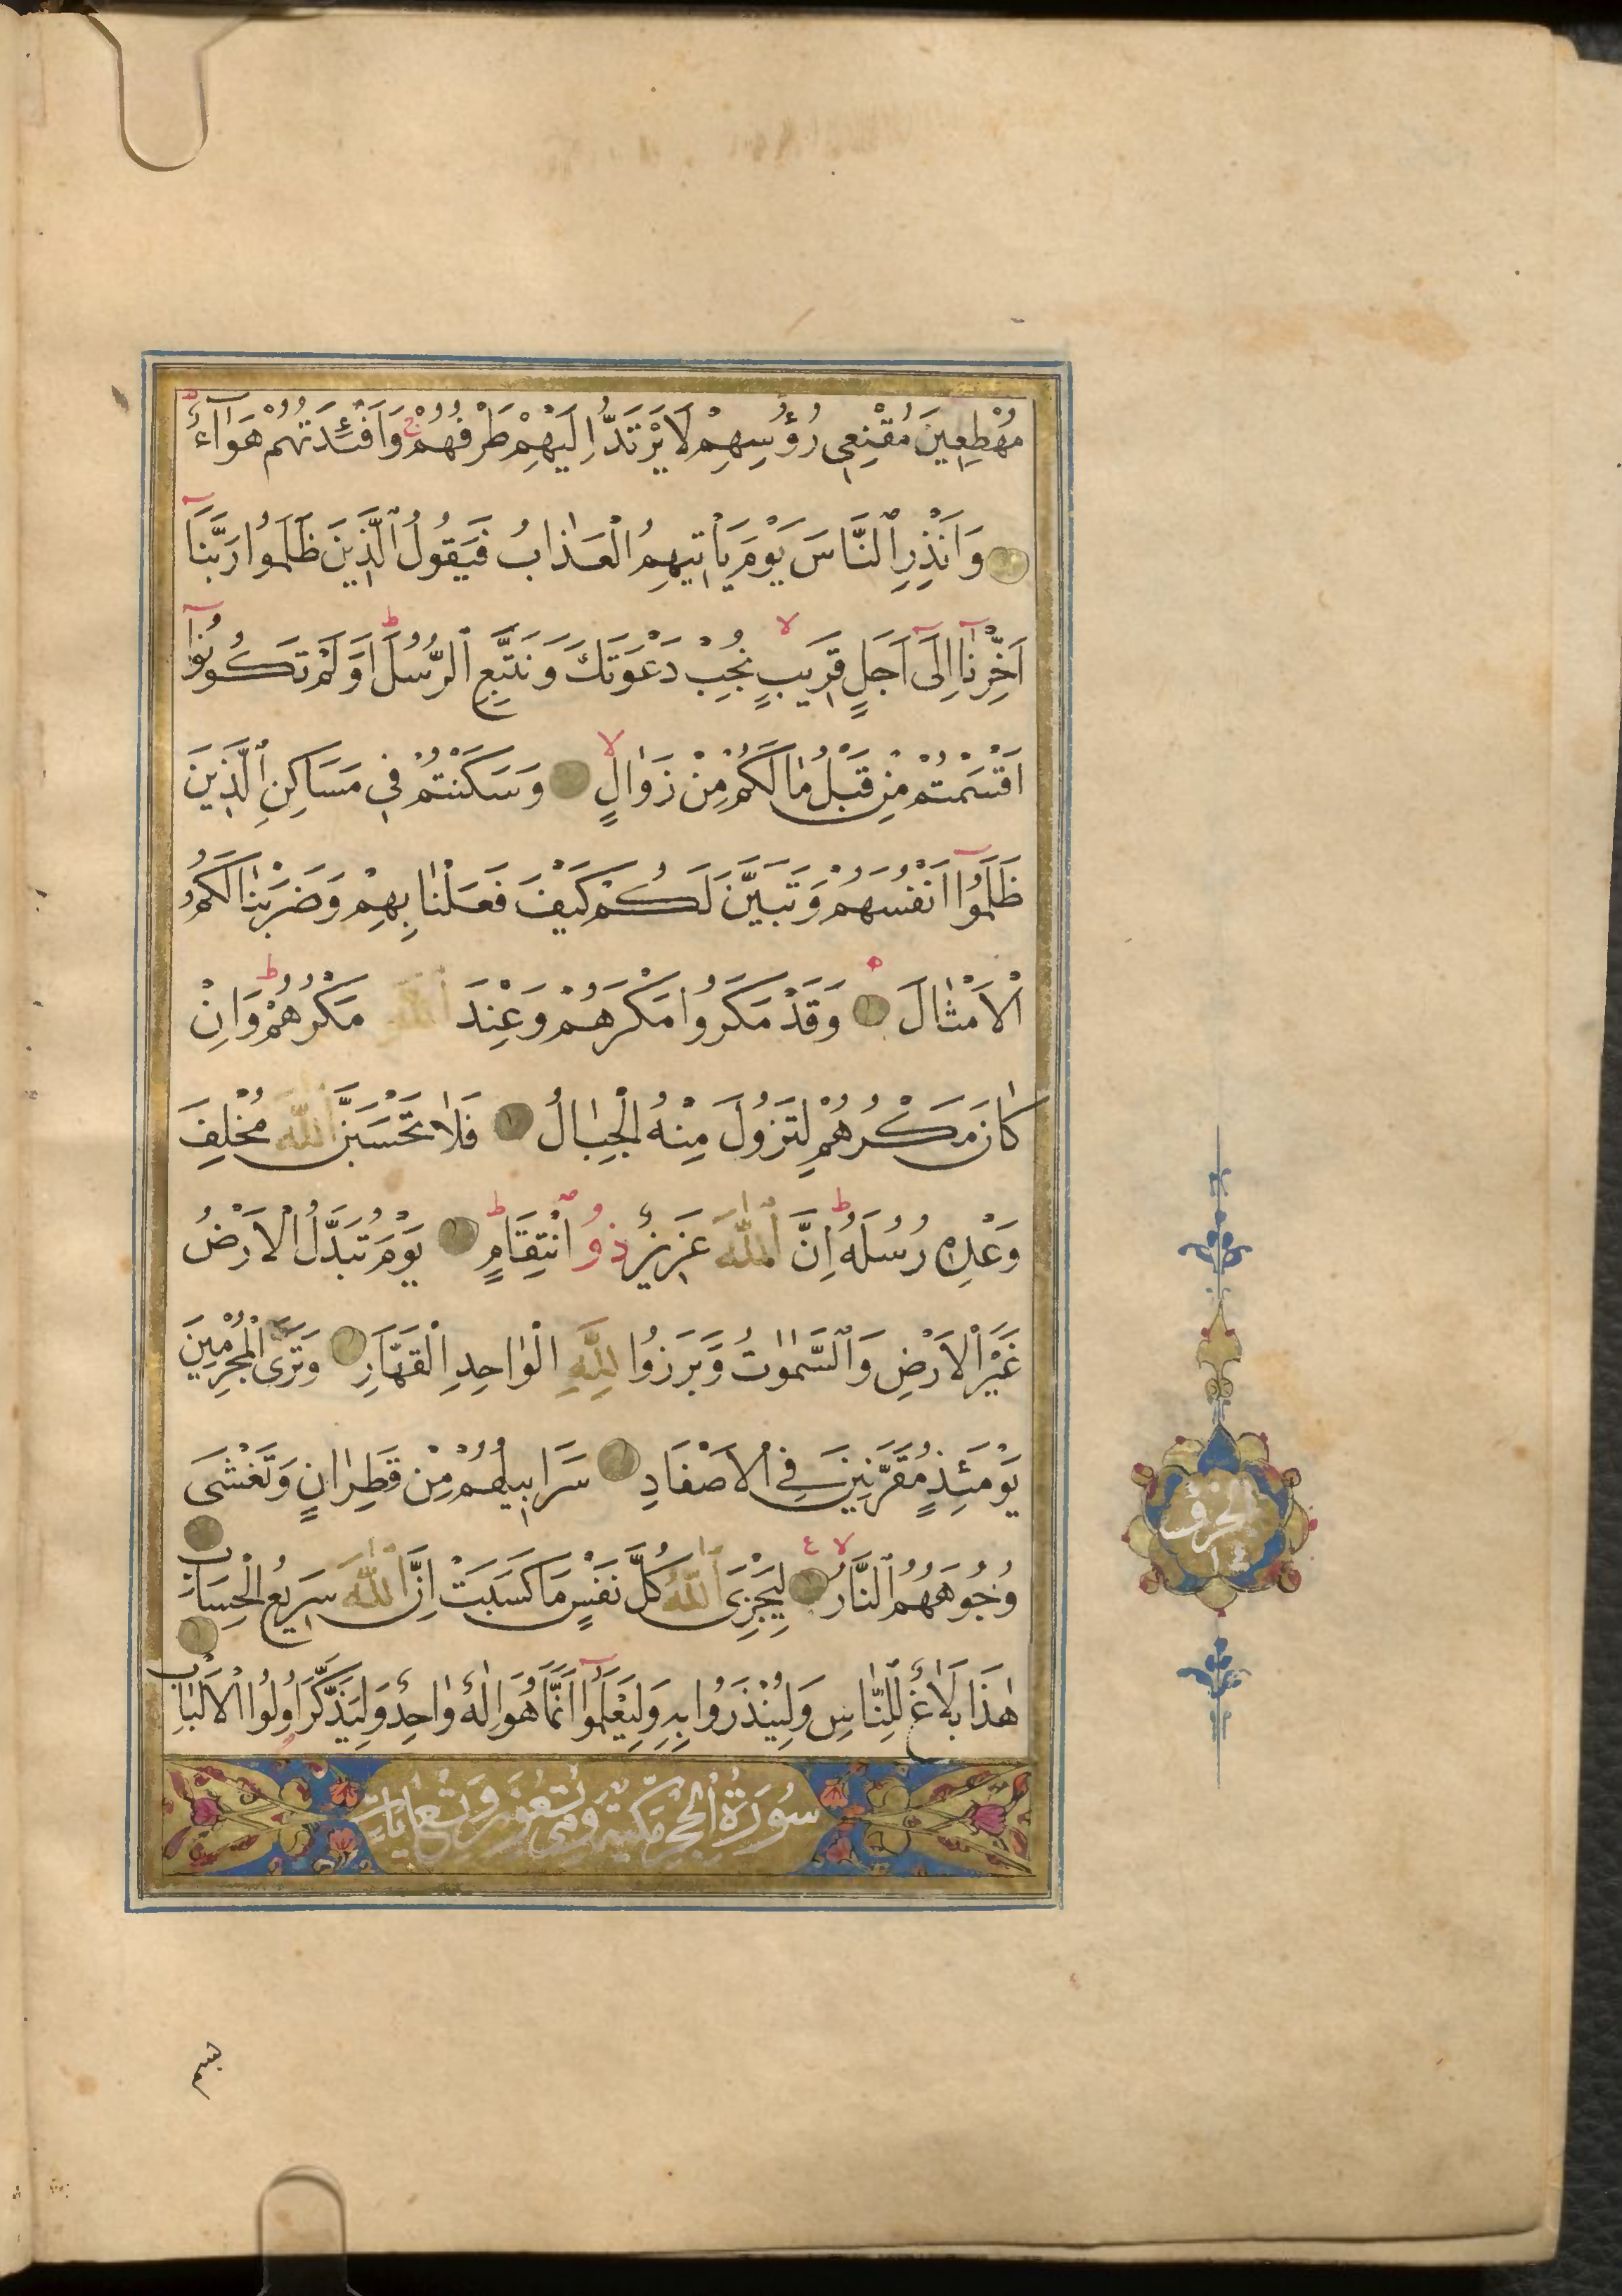 مُهْطِعِينَ مُقْنِعِى رُؤُسِهِمْ لَا يَرْتَدُّ اِلَيْهِمْ طَرْفُهُمْ ج وَاَفْـِٔدَتُهُمْ هَوَآءٌ ط
وَاَنْذِرِ ٱلنَّاسَ يَوْمَ يَاْتِيهِمُ الْعَذَابُ فَيَقُولُ ٱلَّذِينَ ظَلَمُوا رَبَّنَآ
اَخِّرْنَآ اِلَىٓ اَجَلٍ قَرِيبٍ لا نُجِبْ دَعْوَتَكَ وَنَتَّبِعِ ٱلرُّسُلَ ط اَوَلَمْ تَكُونُوٓا
اَقْسَمْتُمْ مِنْ قَبْلُ مَا لَكُمْ مِنْ زَوَالٍ لا وَسَكَنْتُمْ فِى مَسَاكِنِ ٱلَّذِينَ
ظَلَمُوٓا اَنْفُسَهُمْ وَتَبَيَّنَ لَكُمْ كَيْفَ فَعَلْنَا بِهِمْ وَضَرَبْنَا لَكُمُ
الْاَمْثَالَ وَقَدْ مَكَرُوا مَكْرَهُمْ وَعِنْدَ ٱللّٰهِ مَكْرُهُمْ ط وَاِنْ
كَانَ مَكْرُهُمْ لِتَزُولَ مِنْهُ الْجِبَالُ فَلَا تَحْسَبَنَّ ٱللّٰهَ مُخْلِفَ
وَعْدِهِ رُسُلَهُ ط اِنَّ ٱللّٰهَ عَزِيزٌ ذُو ٱنْتِقَامٍ ط يَوْمَ تُبَدَّلُ الْاَرْضُ
غَيْرَ الْاَرْضِ وَٱلسَّمٰوَاتُ وَبَرَزُوا لِلّٰهِ الْوَاحِدِ الْقَهَّارِ وَتَرَى الْمُجْرِمِينَ
يَوْمَئِذٍ مُقَرَّنِينَ فِى الْاَصْفَادِ سَرَابِيلُهُمْ مِنْ قَطِرَانٍ وَتَغْشَى
وُجُوهَهُمُ ٱلنَّارُ لا لِيَجْزِىَ ٱللّٰهُ كُلَّ نَفْسٍ مَا كَسَبَتْ اِنَّ ٱللّٰهَ سَرِيعُ الْحِسَابِ
هٰذَا بَلَاغٌ لِلنَّاسِ وَلِيُنْذَرُوا بِهِ وَلِيَعْلَمُوٓا اَنَّمَا هُوَ اِلٰهٌ وَاحِدٌ وَلِيَذَّكَّرَ اُولُوا الْاَلْبَابِ
سُورَةُ الْحِجْرِ مَكِّيَّة وَهِىَ تِسْعُونَ وَتِسْعُ اٰيَات
الجزؤ
١٤
بسم